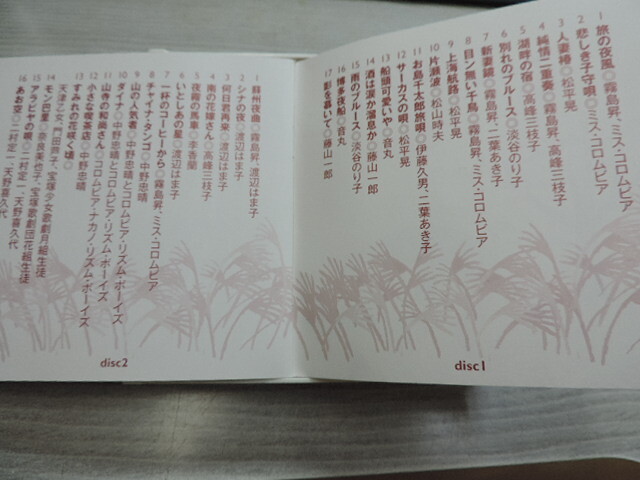 1 旅の夜風◎霧島昇、ミス・コロムビア
2 悲しき子守唄◎ミス・コロムビア
3 人妻椿◎松平晃
4 純情二重奏◎霧島昇、高峰三枝子
5 湖畔の宿◎高峰三枝子
6 別れのブルース◎淡谷のり子
7 新妻鏡◎霧島昇、二葉あき子
8 目ン無い千鳥◎霧島昇、ミス・コロムビア
9 上海航路◎松平晃
10 片瀬波◎松山時夫
11 お島千太郎旅唄◎伊藤久男、二葉あき子
12 サーカスの唄◎松平晃
13 船頭可愛いや◎音丸
14 酒は涙か溜息か◎藤山一郎
15 雨のブルース◎淡谷のり子
16 博多夜船◎音丸
17 影を慕いて◎藤山一郎
disc1
1 蘇州夜曲◎霧島昇、渡辺はま子
2 シナの夜◎渡辺はま子
3 何日君再来◎渡辺はま子
4 南の花嫁さん◎高峰三枝子
5 夜霧の馬車◎李香蘭
6 いとしあの星◎渡辺はま子
7 一杯のコーヒーから◎霧島昇、ミス・コロムビア
8 チャイナ・タンゴ◎中野忠晴
9 山の人気者◎中野忠晴とコロムビア・リズム・ボーイズ
10 ダイナ◎中野忠晴とコロムビア・リズム・ボーイズ
11 山寺の和尚さん◎コロムビア・ナカノ・リズム・ボーイズ
12 小さな喫茶店◎中野忠晴
13 すみれの花咲く頃◎
天津乙女、門田芦子、宝塚少女歌劇月組生徒
14 モン巴里◎奈良美也子、宝塚歌劇団花組生徒
15 アラビヤの唄◎二村定一、天野喜久代
16 あお空◎二村定一、天野喜久代
disc2